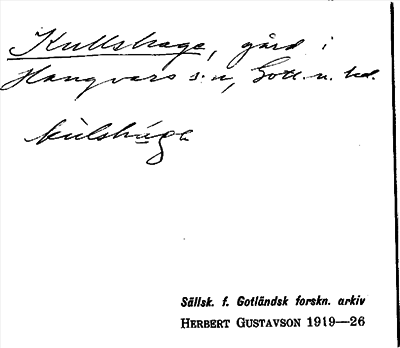 Kullshage, gård i
Hangvars s:n, Gotl. n. hd.
kùlshúga
Sällsk. f. Gotländsk forskn. arkiv
HERBERT GUSTAVSON 1919—26